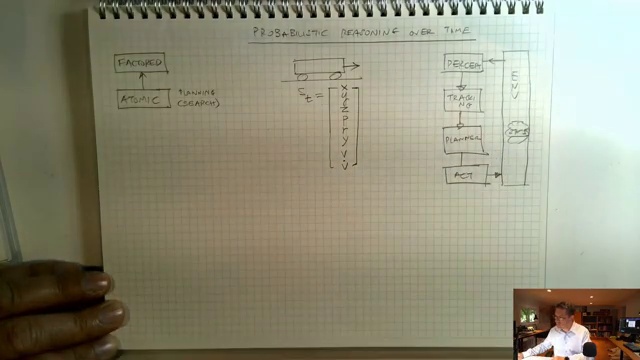 PROBABILISTIC REASONING OVER TIME
FACTORED
ATOMIC
PLANNING
(SEARCH)
S t =
x
y
z
p
r
y
v
v̇
TRACKING
PLANNER
ACT
ENV